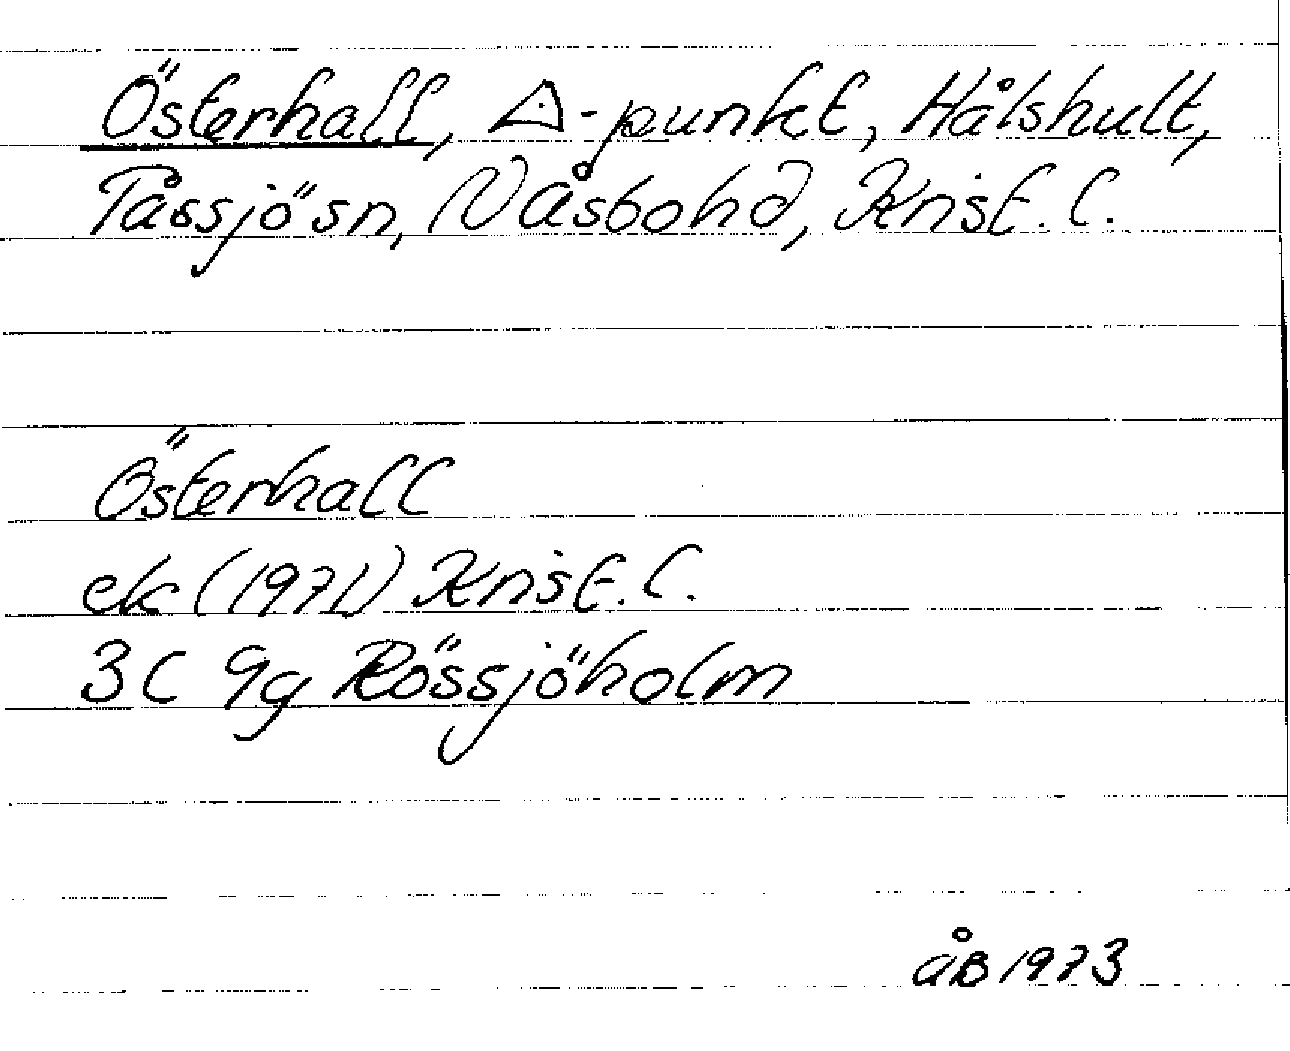 Österhall, △-punkt, Hålshult,
Tåssjö sn, N Åsbo hd, Krist. l.
Österhall
ek (1971) Krist. l.
3C 9g Rössjöholm
åB 1973